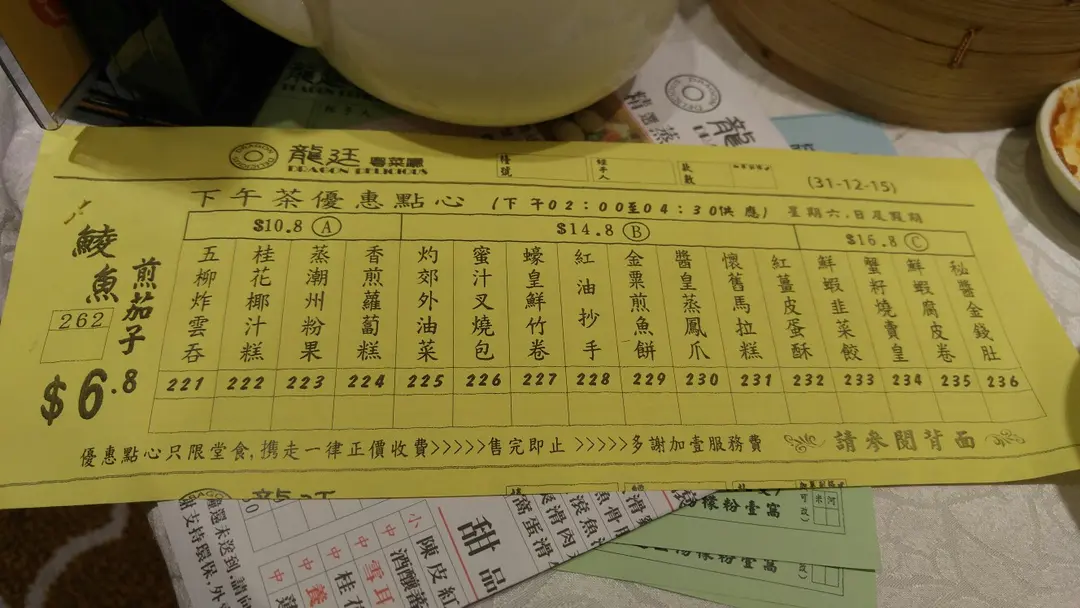 龍廷 粵菜廳
DRAGON DELICIOUS
檯號
經手人
(31-12-15)
下午茶優惠點心 (下午02:00至04:30供應) 星期六.日及假期
鯪魚
煎茄子
262
$6.8
$10.8 A
$14.8 B
$16.8 C
五柳炸雲吞
桂花椰汁糕
蒸潮州粉果
香煎蘿蔔糕
灼郊外油菜
蜜汁叉燒包
蠔皇鮮竹卷
紅油抄手
金粟煎魚餅
醬皇蒸鳳爪
懷舊馬拉糕
紅薑皮蛋酥
鮮蝦韭菜餃
蟹籽燒賣皇
鮮蝦腐皮卷
秘醬金錢肚
221 222 223 224 225 226 227 228 229 230 231 232 233 234 235 236
優惠點心只限堂食,攜走一律正價收費>>>>>售完即止 >>>>>多謝加壹服務費
請參閱背面
龍
精選蒸
龍廷
甜品
小 陳皮紅
中 酒釀
中 雪耳
中 桂花